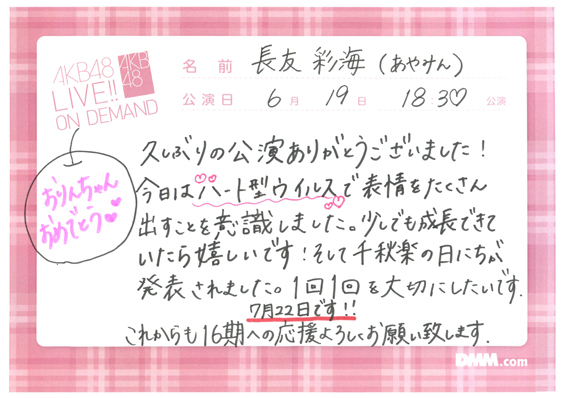 AKB48
LIVE!!
ON DEMAND
AKB
48
名前 長友 彩海 (あやみん)
公演日 6月 19日 18:30 公演
久しぶりの公演ありがとうございました!
今日はハート型ウイルスで表情をたくさん
出すことを意識しました。少しでも成長できて
いたら嬉しいです!そして千秋楽の日にちが
発表されました。1回1回を大切にしたいです.
7月22日です!!
これからも16期への応援よろしくお願い致します.
おりんちゃん
おめでとう
DMM.com